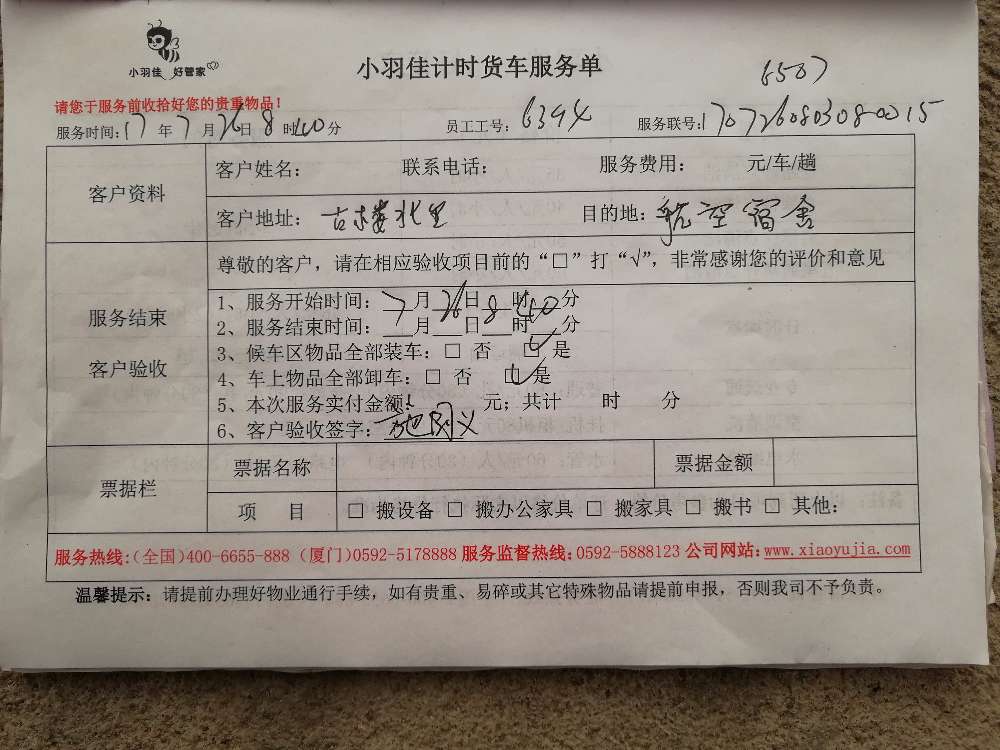 小羽佳 好管家
小羽佳计时货车服务单
6507
请您于服务前收拾好您的贵重物品！
服务时间：17年7月26日8时40分 员工工号：6394 服务联号：170726080308-0015
客户资料
客户姓名： 联系电话： 服务费用： 元/车/趟
客户地址：古楼北里 目的地：航空宿舍
服务结束
客户验收
尊敬的客户，请在相应验收项目前的“□”打“√”，非常感谢您的评价和意见
1、服务开始时间：7月26日8时40分
2、服务结束时间：__月__日__时__分
3、候车区物品全部装车：□ 否 ☑ 是
4、车上物品全部卸车：□ 否 ☑ 是
5、本次服务实付金额： 元；共计 时 分
6、客户验收签字：
票据栏
票据名称 票据金额
项 目 □ 搬设备 □ 搬办公家具 □ 搬家具 □ 搬书 □ 其他：
服务热线：(全国)400-6655-888 (厦门)0592-5178888 服务监督热线：0592-5888123 公司网站：www.xiaoyujia.com
温馨提示：请提前办理好物业通行手续，如有贵重、易碎或其它特殊物品请提前申报，否则我司不予负责。